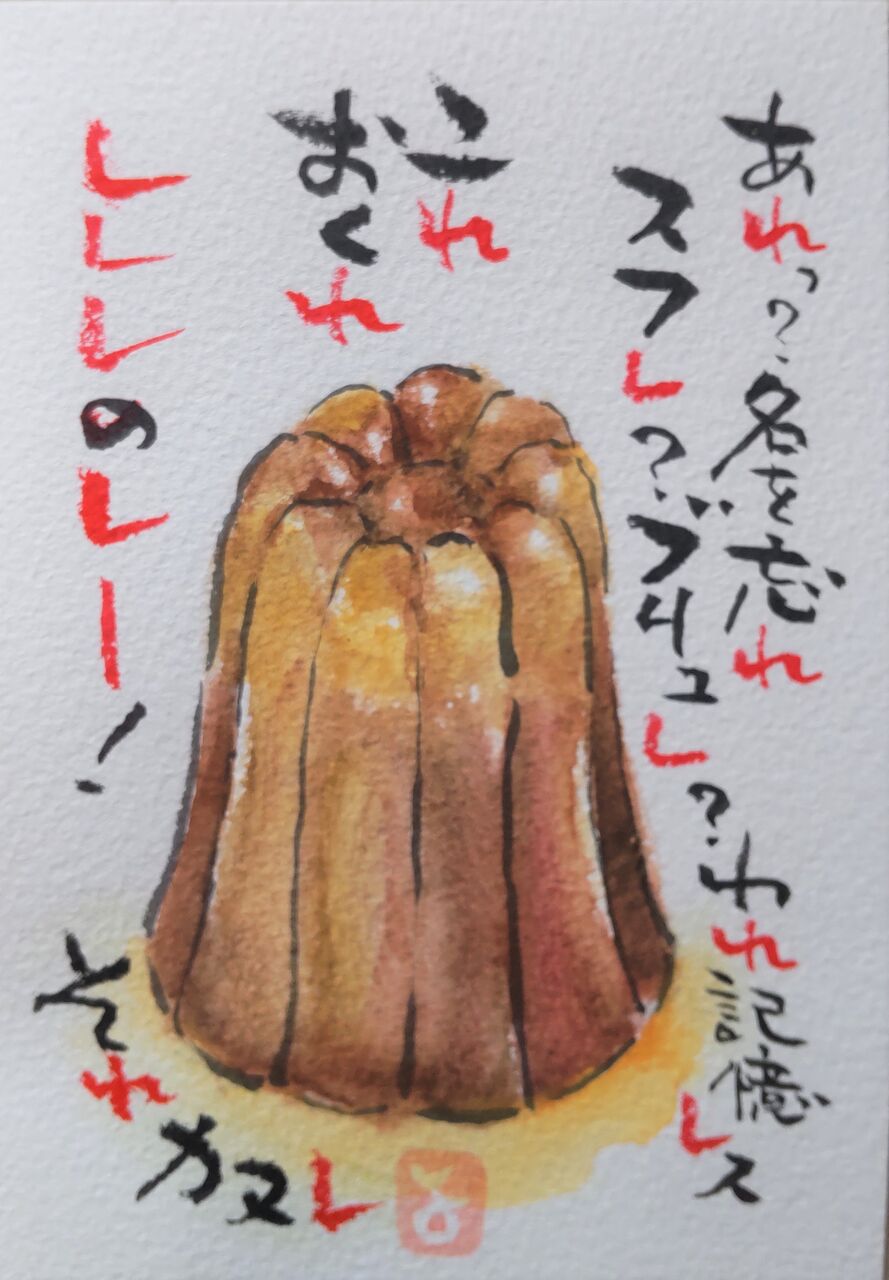 あれっ?名を忘れ
スフレ?ブリュレ?
われ記憶
レス
これ
おくれ
レレレのレー!
それ
カヌレ